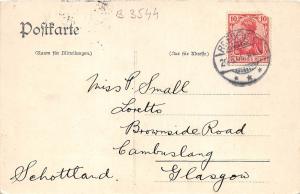 B 3544
Postkarte
(Raum für Mitteilungen.)
(Nur für Adresse.)
10
10
Miss P. Small
Loretto
Brownside Road
Cambuslang
Glasgow
Schottland.